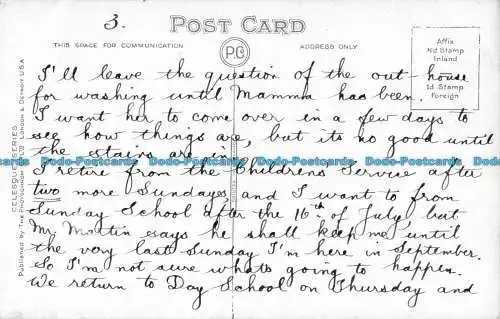 3.
POST CARD
THIS SPACE FOR COMMUNICATION
P.C
ADDRESS ONLY
Affix
½d Stamp
Inland
1d Stamp
Foreign
CELESQUE SERIES
Published by The Photochrom Co Ltd London & Detroit U.S.A
I'll leave the question of the out-house
for washing until Mamma has been.
I want her to come over in a few days to
see how things are, but its no good until
the stairs are in
I retire from the Childrens Service after
two more Sundays, and I want to from
Sunday School after the 16th of July but
Mr. Martin says he shall keep me until
the very last Sunday I'm here in September.
So I'm not sure whats going to happen.
We return to Day School on Thursday and
Dodo-Postcards Dodo-Postcards Dodo-Postcards Dodo-Postcards Dodo-Postcards Dodo-Postcards